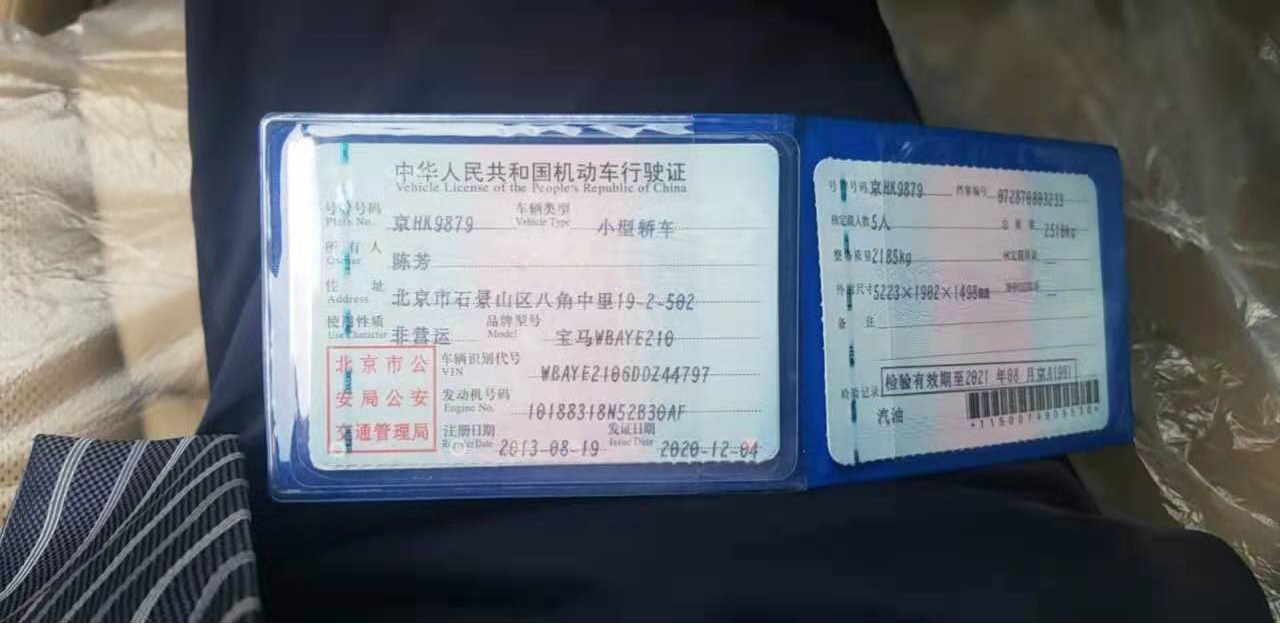 中华人民共和国机动车行驶证
Vehicle License of the People's Republic of China
号牌号码 京HK9879 车辆类型 小型轿车
Plate No. Vehicle Type
所有人 陈芳
Owner
住址 北京市石景山区八角中里19-2-502
Address
使用性质 非营运 品牌型号 宝马WBAYE210
Use Character Model
北京市公
安局公安
交通管理局
车辆识别代号 WBAYE2106DDZ44797
VIN
发动机号码 10188318N52B30AF
Engine No.
注册日期 2013-08-19 发证日期 2020-12-04
Register Date Issue Date
号牌号码 京HK9879 档案编号
核定载人数 5人 总质量 2510kg
整备质量 2185kg 核定载质量 --
外廓尺寸 5223×1902×1498mm
备注
检验记录 检验有效期至2021年08月京A(99)
汽油